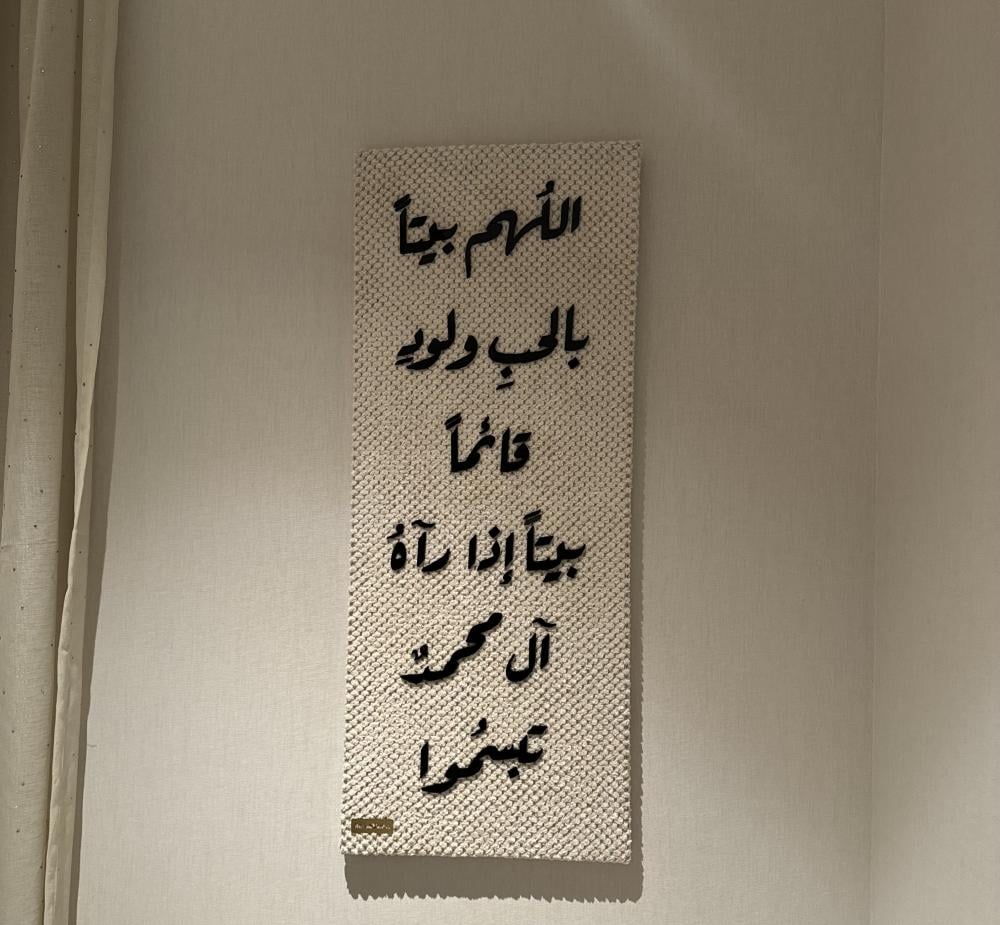 اللُهم بيتاً
بالحبِ ولودِ
قائماً
بيتاً إذا رآهُ
آل محمدٌ
تبسُموا